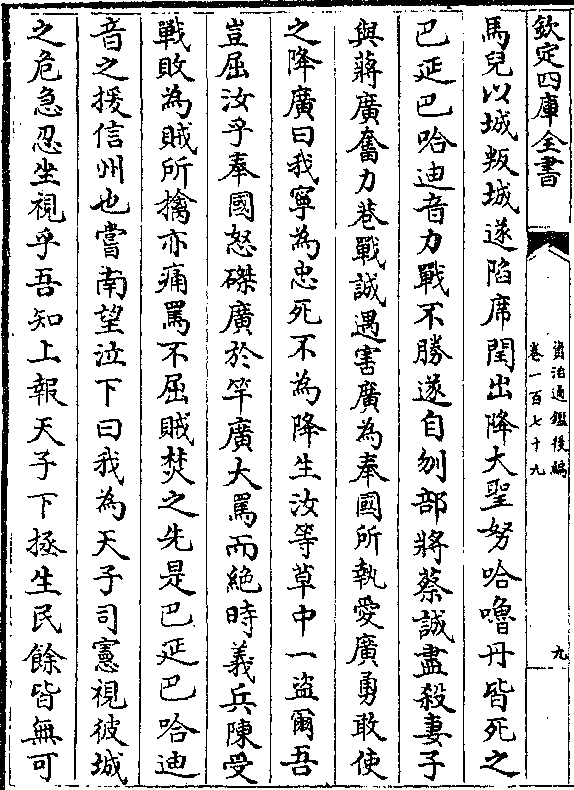 欽定四庫全書
資治通鑑後編
卷一百七十九
九
馬兒以城叛城遂陷席閏出降大聖努哈嚕丹皆死之
巴延巴哈迪音力戰不勝遂自刎部將蔡誠盡殺妻子
與蔣廣奮力巷戰誠遇害廣為奉國所執愛廣勇敢使
之降廣曰我寧為忠死不為降生汝等草中一盜爾吾
豈屈汝乎奉國怒磔廣於竿廣大罵而絶時義兵陳受
戰敗為賊所擒亦痛罵不屈賊焚之先是巴延巴哈迪
音之援信州也嘗南望泣下曰我為天子司憲視彼城
之危急忍坐視乎吾知上報天子下拯生民餘皆無可